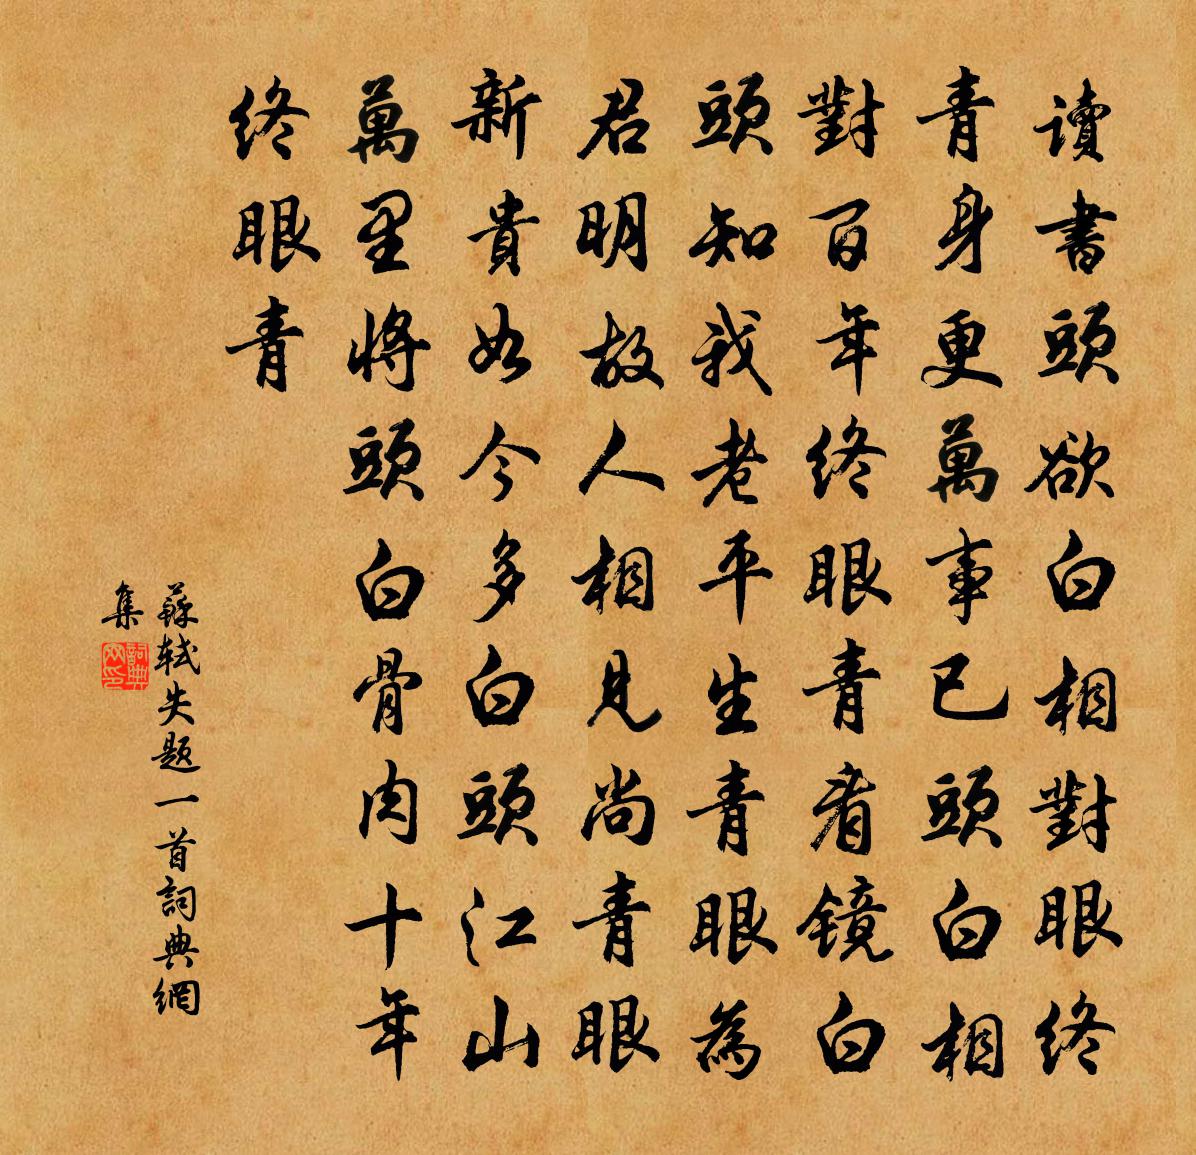 讀書頭欲白相對眼終
青身更萬事已頭白相
對百年終眼青看鏡白
頭知我老平生青眼為
君明故人相見尚青眼
新貴如今多白頭江山
萬里將頭白骨肉十年
終眼青
蘇軾失題一首詞典網
集
詞典网印